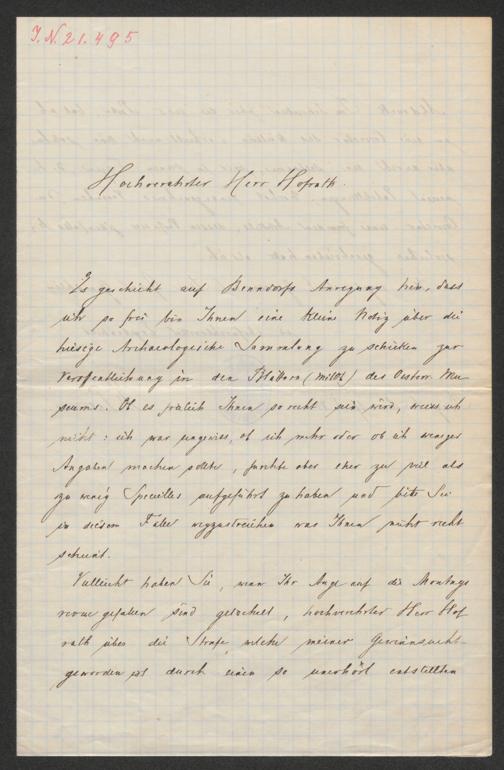 J. N. 21.495
Hochverehrter Herr Hofrath.
Es geschieht auf Benndorfs Anregung hin, dass
ich so frei bin Ihnen eine kleine Notiz über die
hiesige Archaeologische Sammlung zu schicken zur
Veröffentlichung in den Blättern (Mitth) des Oesterr. Mu-
seums. Ob es freilich Ihnen so recht sein wird, weiss ich
nicht: ich war ungewiss, ob ich mehr oder ob ich weniger
Angaben machen sollte, fürchte aber eher zu viel als
zu wenig Specielles aufgeführt zu haben und bitte Sie
in diesem Falle wegzustreichen was Ihnen nicht recht
scheint.
Vielleicht haben Sie, wenn Ihr Auge auf die Montags
revue gefallen sind gelächelt, hochverehrter Herr Hof
rath über die Strafe, welche meiner Gewinnsucht
geworden ist durch einen so unerhört entstellten